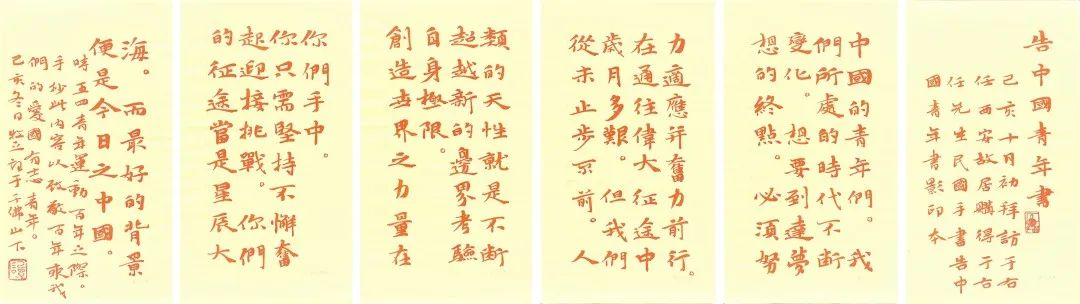 告中國青年書
己亥十月初拜訪于右
任西安故居購得于右
任先生民國手書告中
國青年書影印本
中國的青年們。我
們所處的時代不斷
變化。想要到達夢
想的終點。必須努
力適應并奮力前行。
在通往偉大征途中
歲月多艱。但我們
從未止步不前。人
類的天性就是不斷
超越新的邊界考驗
自身極限。
創造世界之力量在
你們手中。
你只需堅持不懈奮
起迎接挑戰。你們
的征途當是星辰大
海。而最好的背景
便是今日之中國。
時五四青年運動百年之際。
手抄此內容以致敬百年來我
們的愛國有志青年。
己亥冬日于千佛山下